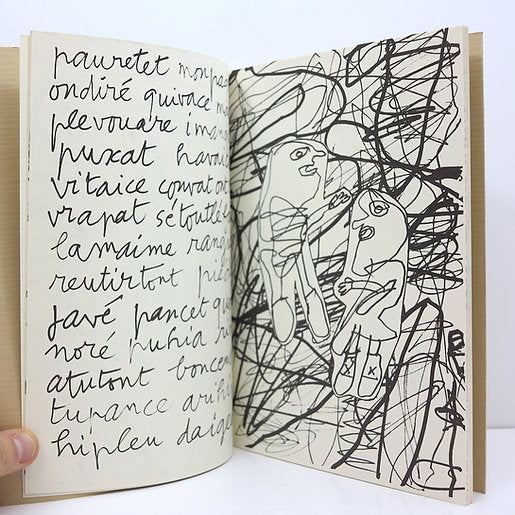 pauretet monpas
ondiré quivace
plevouare iman
puxat havou
vitaice convat ont
vrapat sétoutlé
lamaime ranq
reutirtont
javé pancet qu
noré puhia
atutont boncen
tupance arih
hipleu daige